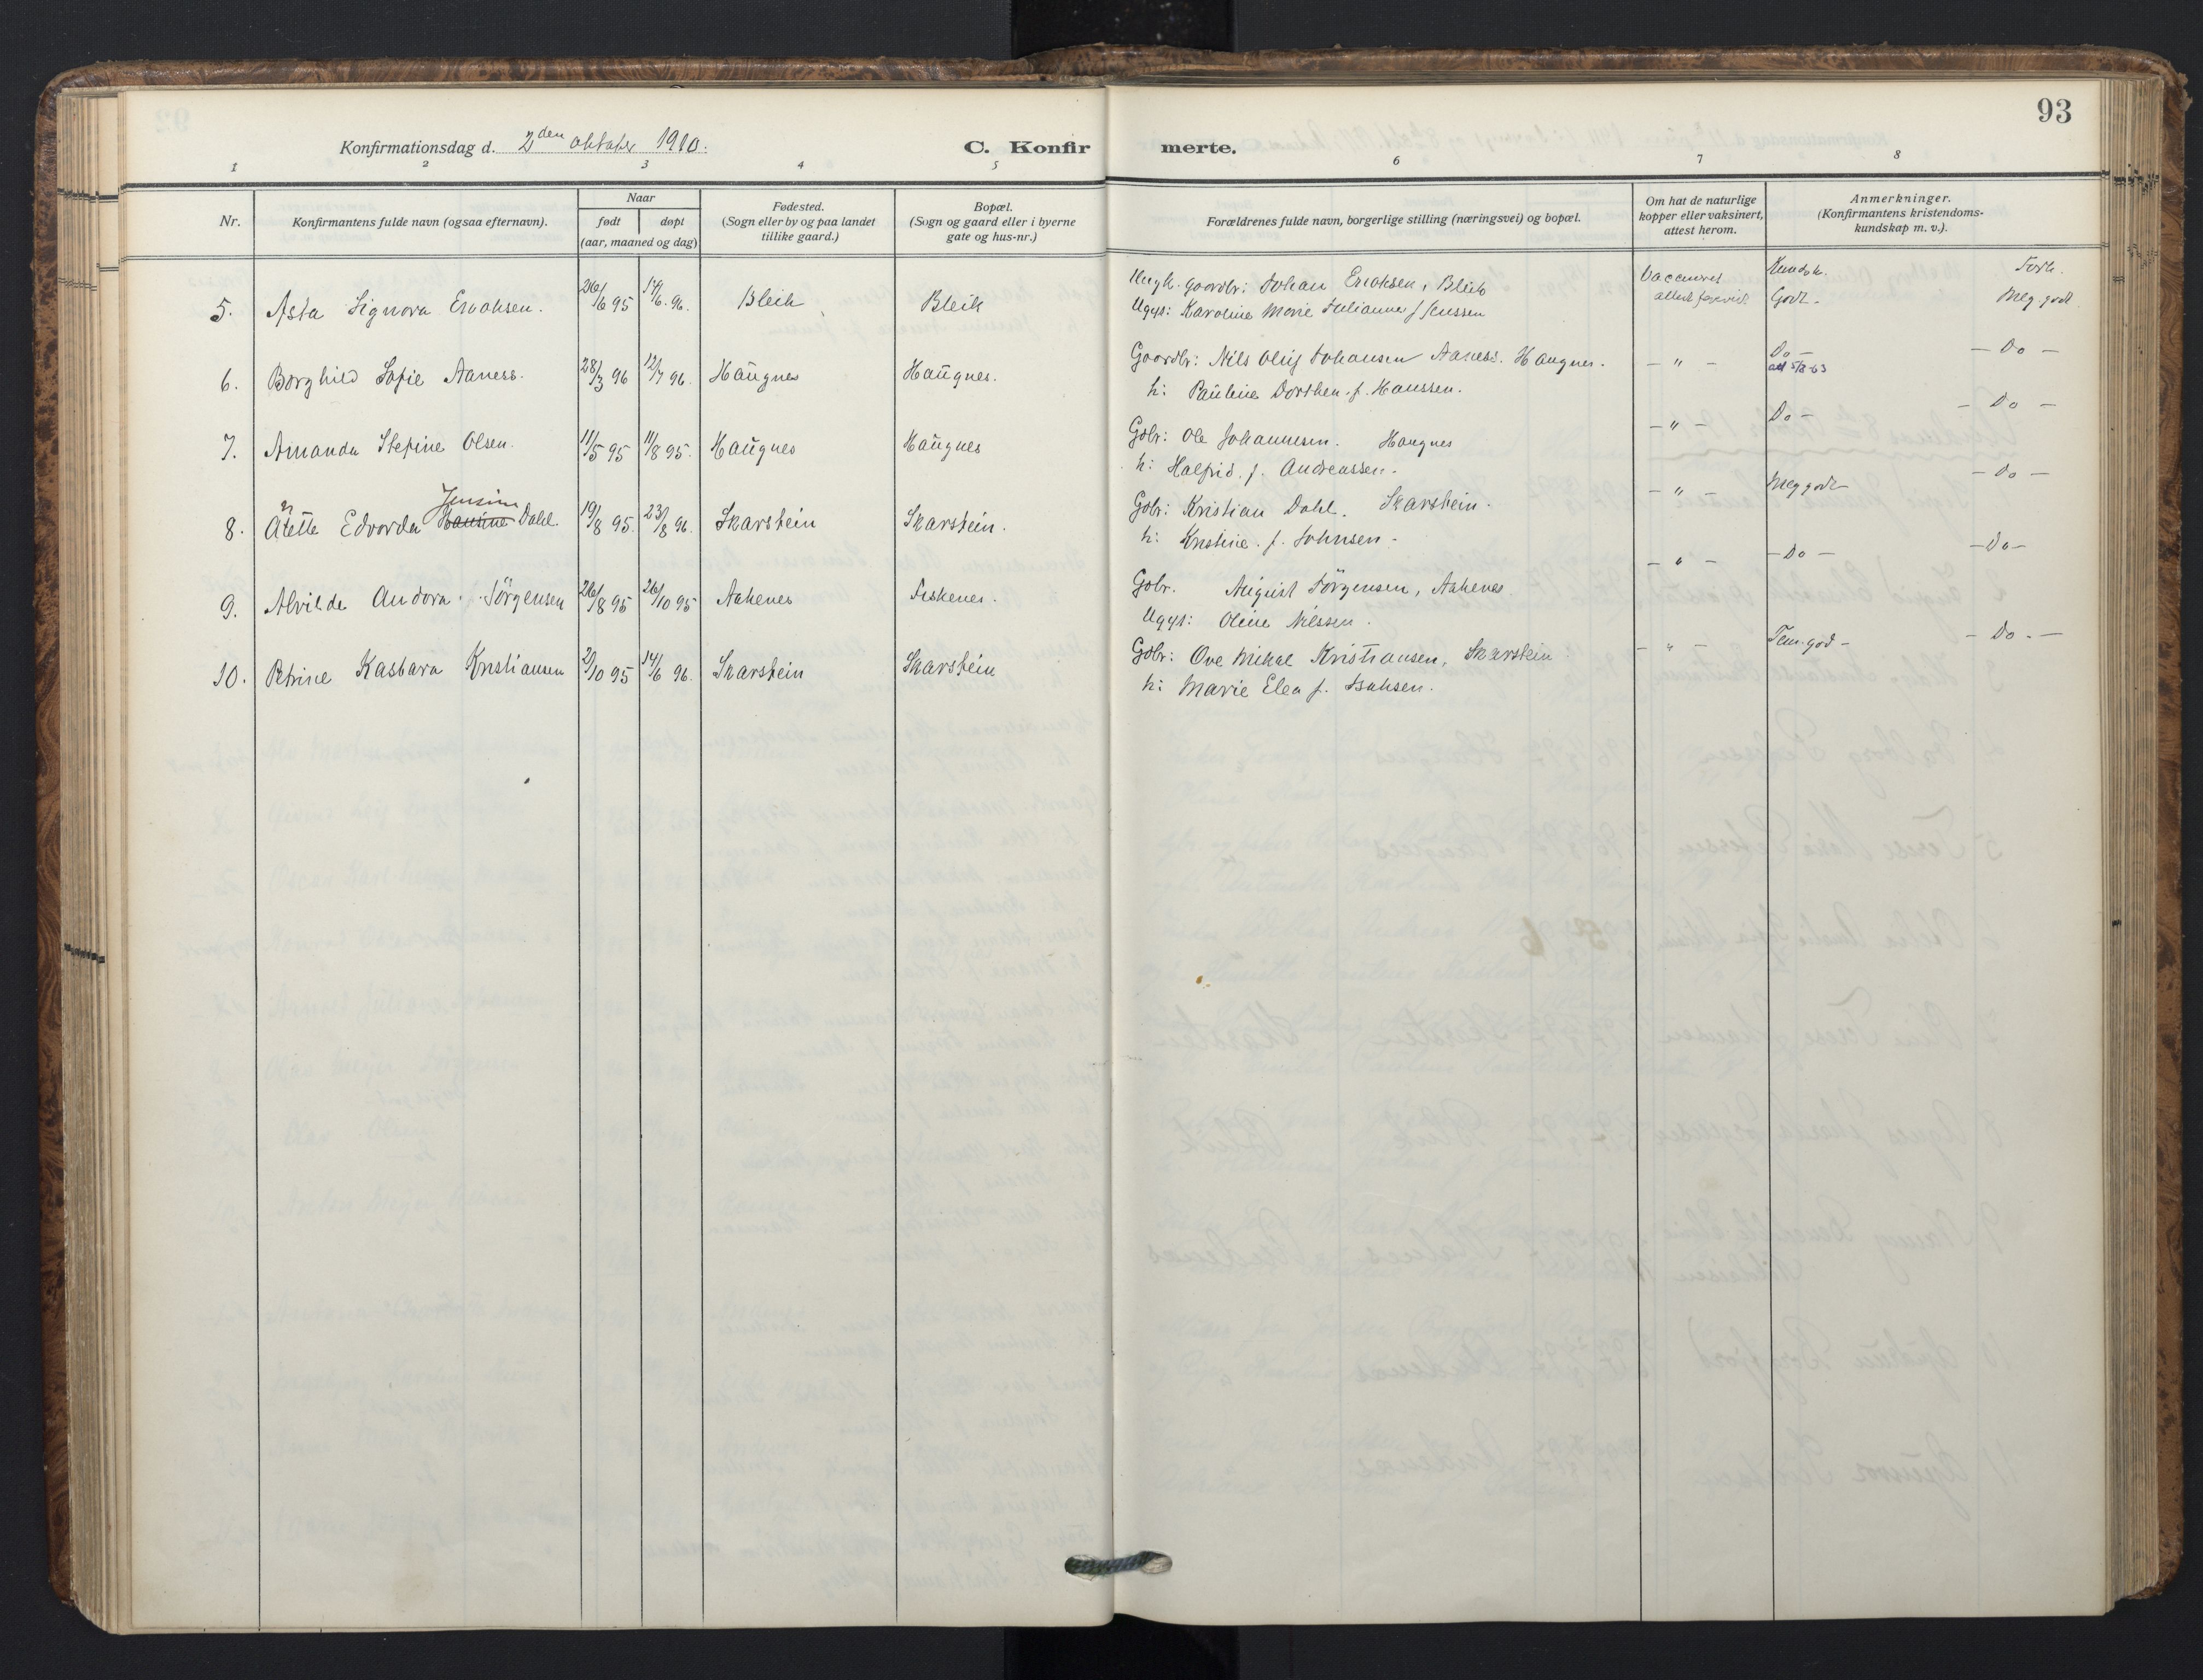 93
Konfirmationsdag d. 2den oktober 1910.
C. Konfirmerte.
1 2 3 4 5 6 7 8
Nr.
Konfirmantens fulde navn (ogsaa efternavn).
Naar
født døpt
(aar, maaned og dag)
Fødested.
(Sogn eller by og paa landet
tillike gaard.)
Bopæl.
(Sogn og gaard eller i byerne
gate og hus-nr.)
Forældrenes fulde navn, borgerlige stilling (næringsvei) og bopæl.
Om hat de naturlige
kopper eller vaksinert,
attest herom.
Anmerkninger.
(Konfirmantens kristendoms-
kundskap m. v.).
Kundsk. Forh.
5. Asta Signora Erichsen. 26/6 95 14/6 96. Bleik Bleik Ungk. Gaardbr: Johan Erichsen, Bleik Vaccineret Godt - Meg godt
Ugps: Karoline Marie Julianne f Jenssen
6. Borghild Sofie Aaness. 28/3 96 12/7 96. Haugnes Haugnes. Gaardbr: Nils Oluf Johansen Aaness. Haugnes. - " - Do - - Do -
att 5/8-63
h: Pauline Dorthea. f. Hanssen.
7. Amanda Stefine Olsen. 11/5 95 11/8 95. Haugnes Haugnes Gobr: Ole Johannesen. Haugnes - " - Do - - Do -
h: Halfrid. f. Andreassen.
8. Anette Edvarda Hansine Jensine Dahl. 19/8 95. 23/8 96. Skarstein Skarstein. Gobr: Kristian Dahl. Skarstein. - " - Meg godt - Do -
h: Kristine. f. Johnsen -
9. Alvilde Andora Jörgensen 26/8 95 26/10 95 Aakenes Fiskenes. Gobr. August Jörgensen, Aakenes - " - - Do - - Do -
Ugps: Oline Nilssen.
10. Petrine Kasbara Kristiansen 29/10 95 14/6 96. Skarstein Skarstein Gobr: Ove Mikal Kristiansen, Skarstein - " - Tem. god - - Do. -
h: Marie Elea f. Isaksen.